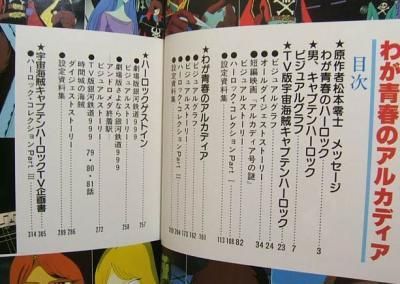 わが青春のアルカディア
目次
★原作者松本零士 メッセージ
わが青春のハーロック 3
★男、キャプテンハーロック
ビジュアルグラフ 7
★TV版宇宙海賊キャプテンハーロック
ビジュアルグラフ 23
オールダイジェストストーリー 24
短編映画「アルカディア号の謎」 34
ビジュアルストーリー 82
ハーロック・コレクションPart I 108
設定資料集 113
★わが青春のアルカディア
ビジュアルグラフ 161
ビジュアルストーリー 162
ハーロック・コレクションPart II
設定資料集
★ハーロックゲストイン
劇場版銀河鉄道999 257
劇場版さよなら銀河鉄道999
アンドロメダ終着駅
ビジュアルストーリー 258
TV版銀河鉄道999 79・80・81話
時間城の海賊
ダイジェストストーリー 286
設定資料集 289
ハーロック・コレクションPart III 305
★宇宙海賊キャプテンハーロックTV企画書 314